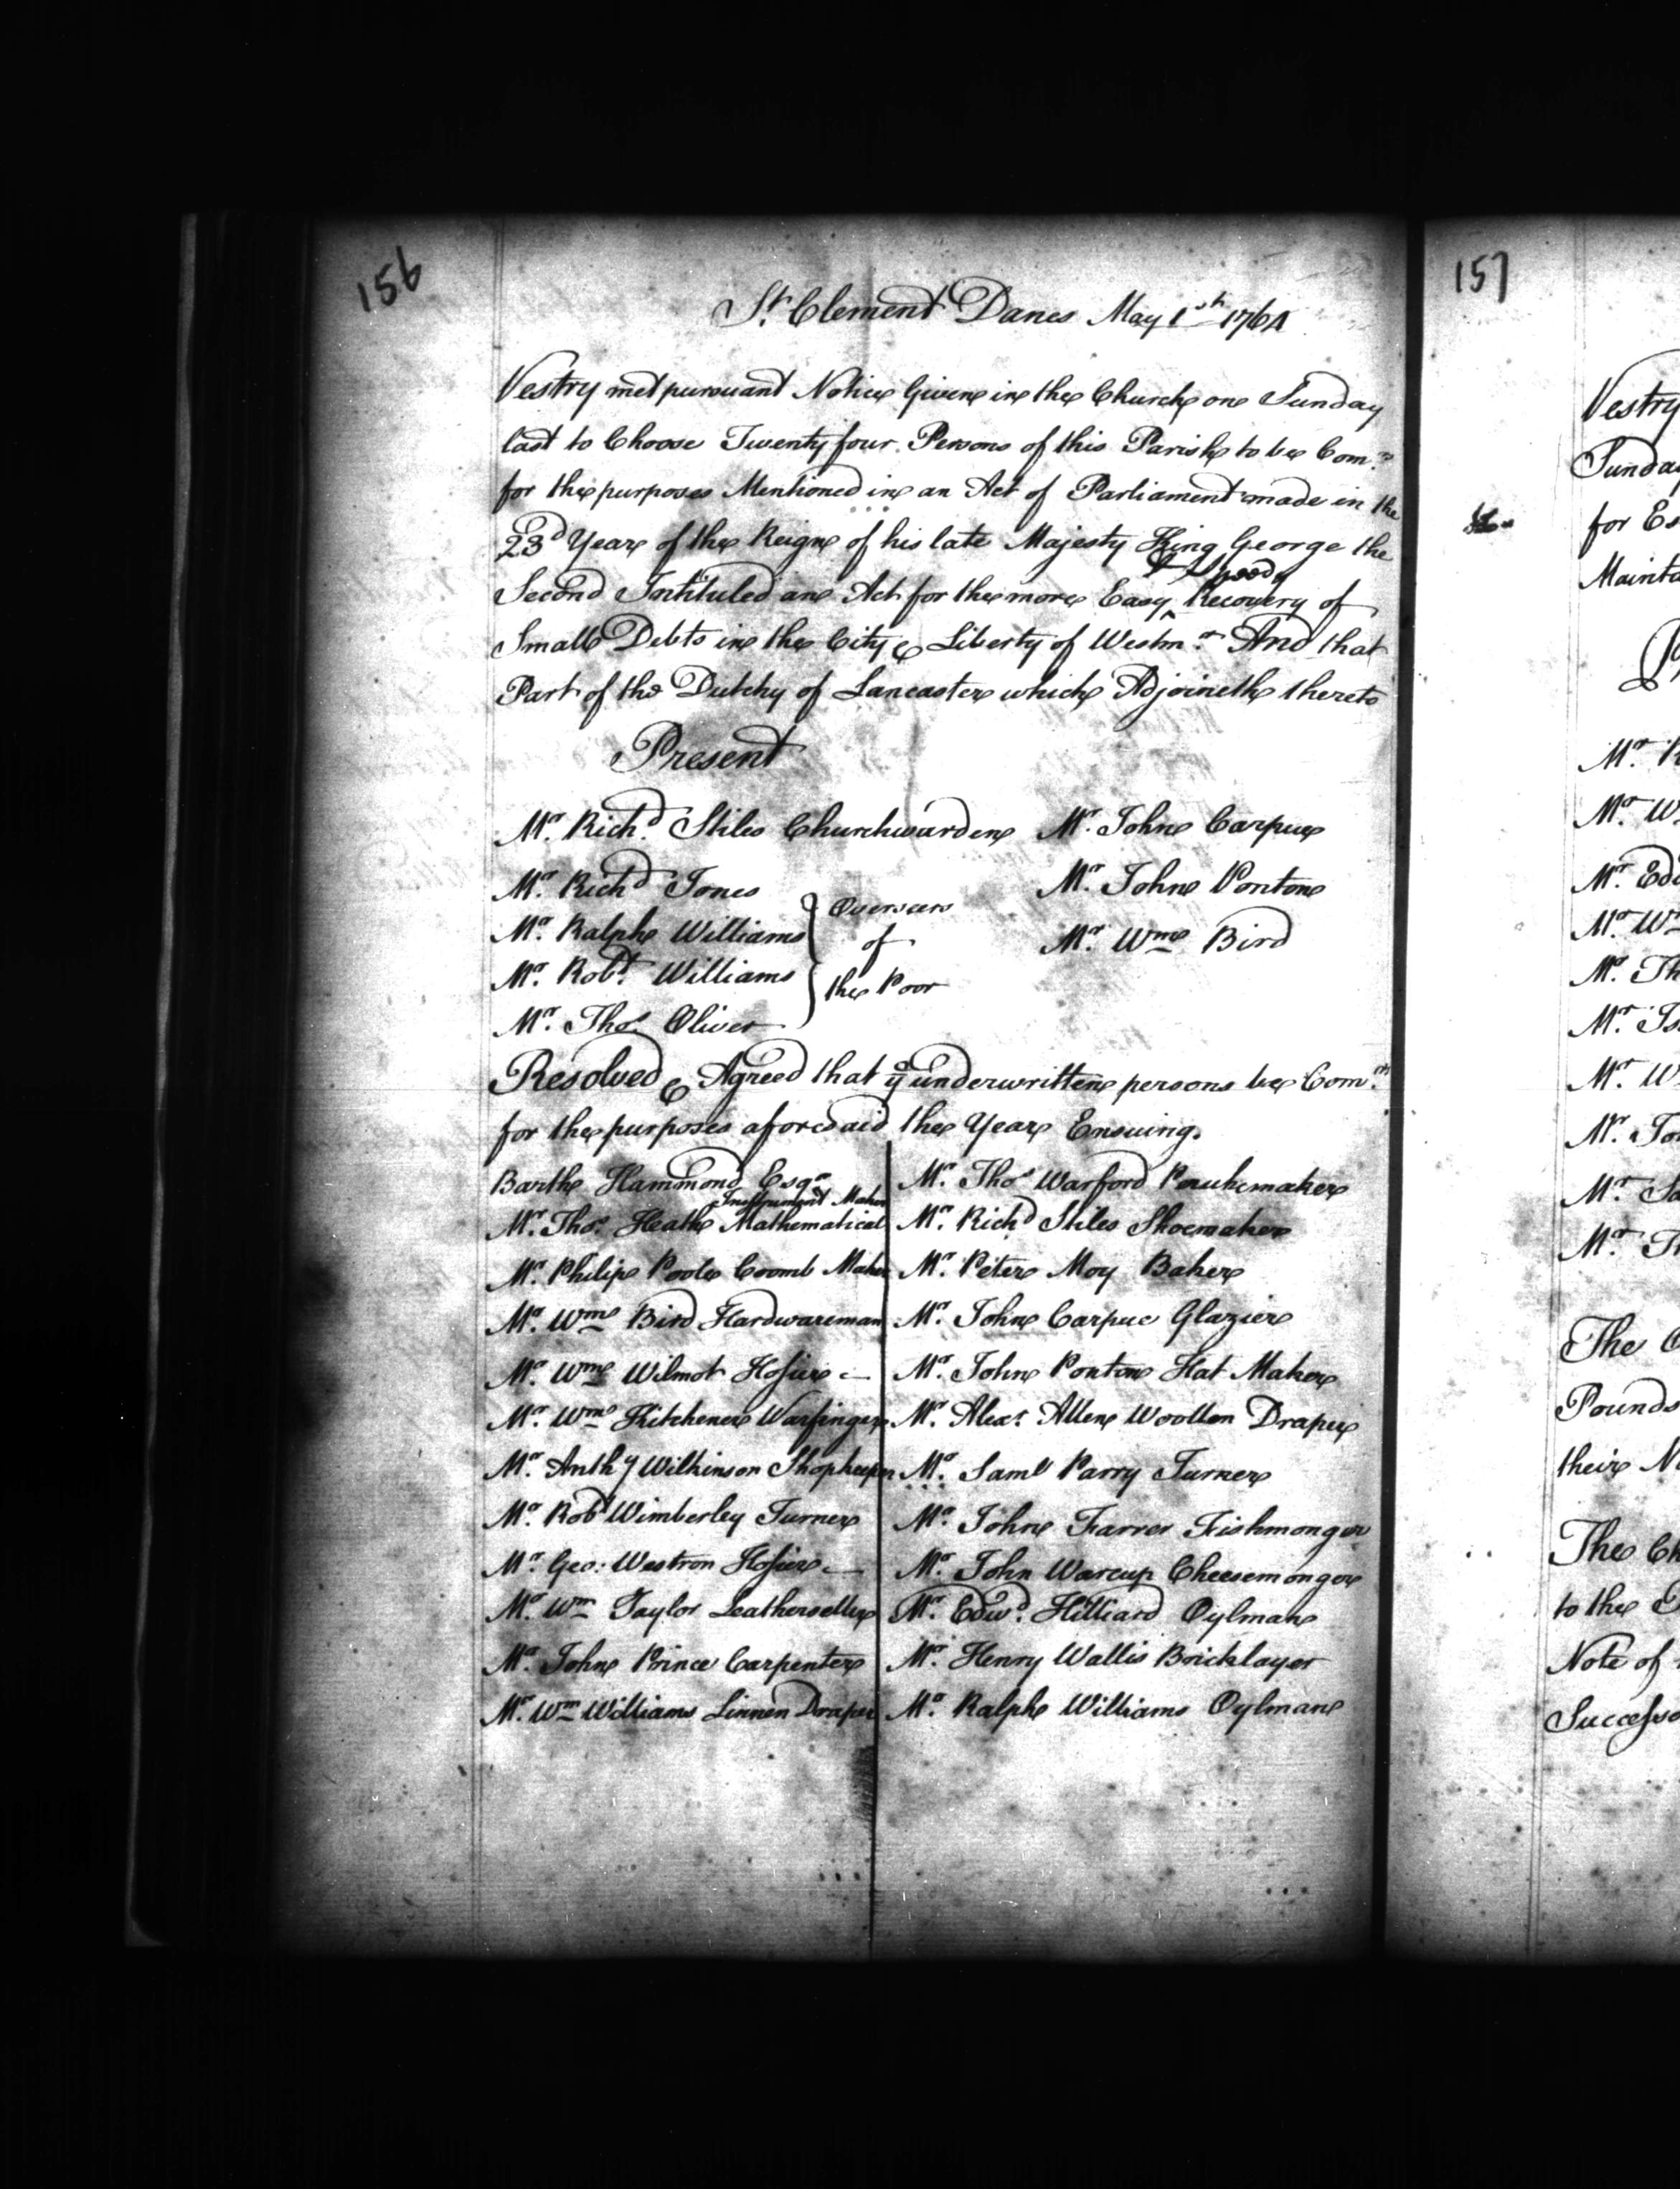 156
St. Clement Danes May 1st 1764
Vestry met pursuant Notice Given in the Church on Sunday
last to Choose Twenty four Persons of this Parish to be Comrs
for the purposes Mentioned in an Act of Parliament made in the
23d Year of the Reign of his late Majesty King George the
& Speedy
Second Intituled an Act for the more Easy ^ Recovery of
Small Debts in the City & Liberty of Westmr And that
Part of the Dutchy of Lancaster which Adjoineth thereto
Present
Mr. Richd. Stiles Churchwarden Mr. John Carpue
Mr. Richd Jones Mr. John Ponton
Overseers
Mr. Ralph Williams of Mr. Wm Bird
Mr. Robt. Williams the Poor
Mr. Thos Oliver
Resolved & Agreed that ye underwritten persons be Comrs
for the purposes aforesaid the Year Ensuing.
Barth Hammond Esqr Mr. Thos Warford Perukemaker
Instrument Maker
Mr. Thos. Heath Mathematical Mr. Richd Stiles Shoemaker
Mr. Philip Poole Coomb Maker Mr. Peter Moy Baker
Mr. Wm Bird Hardwareman Mr. John Carpue Glazier
Mr. Wm Wilmot Hosier Mr. John Ponton Hat Maker
Mr. Wm Kitchener Warfinger Mr. Alexr. Allen Woollen Draper
Mr. Anthy Wilkinson Shopkeeper Mr. Saml Parry Turner
Mr. Robt Wimberley Turner Mr. John Farrer Fishmonger
Mr. Geo: Westron Hosier Mr. John Warcup Cheesemonger
Mr. Wm Taylor Leatherseller Mr. Edwd. Hilliard Oylman
Mr. John Prince Carpenter Mr. Henry Wallis Bricklayer
Mr. Wm Williams Linnen Draper Mr. Ralph Williams Oylman
157
Vestry
Sunda
for Es
Maint
Mr.
Mr. W
Mr. Ed
Mr. W
Mr. Th
Mr.
Mr. W
Mr.
Mr. Sa
Mr.
The
Pounds
their N
The Ch
to the
Note of
Successo